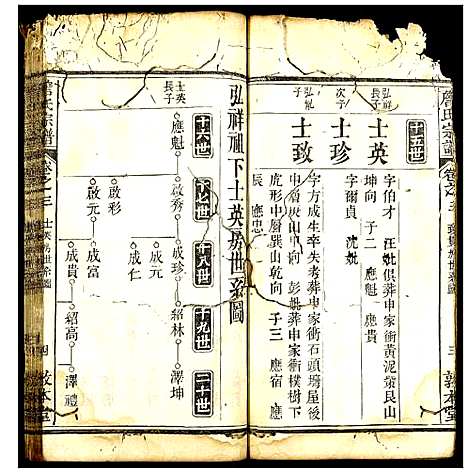 詹氏宗譜
卷之三
三
敦本堂
十五世
弘祥
長子
士英
字伯才 汪妣俱葬申家衝黃泥
坤向 子二 應魁 應貴
次子
士珍
字爾貞 沈妣
弘
子
士致
字方成生卒失考葬申家衝石頭塆屋後
中山向 彭妣葬申家衝樸樹下
虎形中層巽山乾向 子三 應宿 應
辰 應忠
弘祥祖下士英房世系圖
十六世
十七世
十八世
十九世
二十世
士英
長子
應魁
啟秀
成珍
紹林
澤坤
成仁
啟彩
啟元
成富
成貴
紹高
澤禮
詹氏宗譜
卷之三
士英房世系圖
四
敦本堂